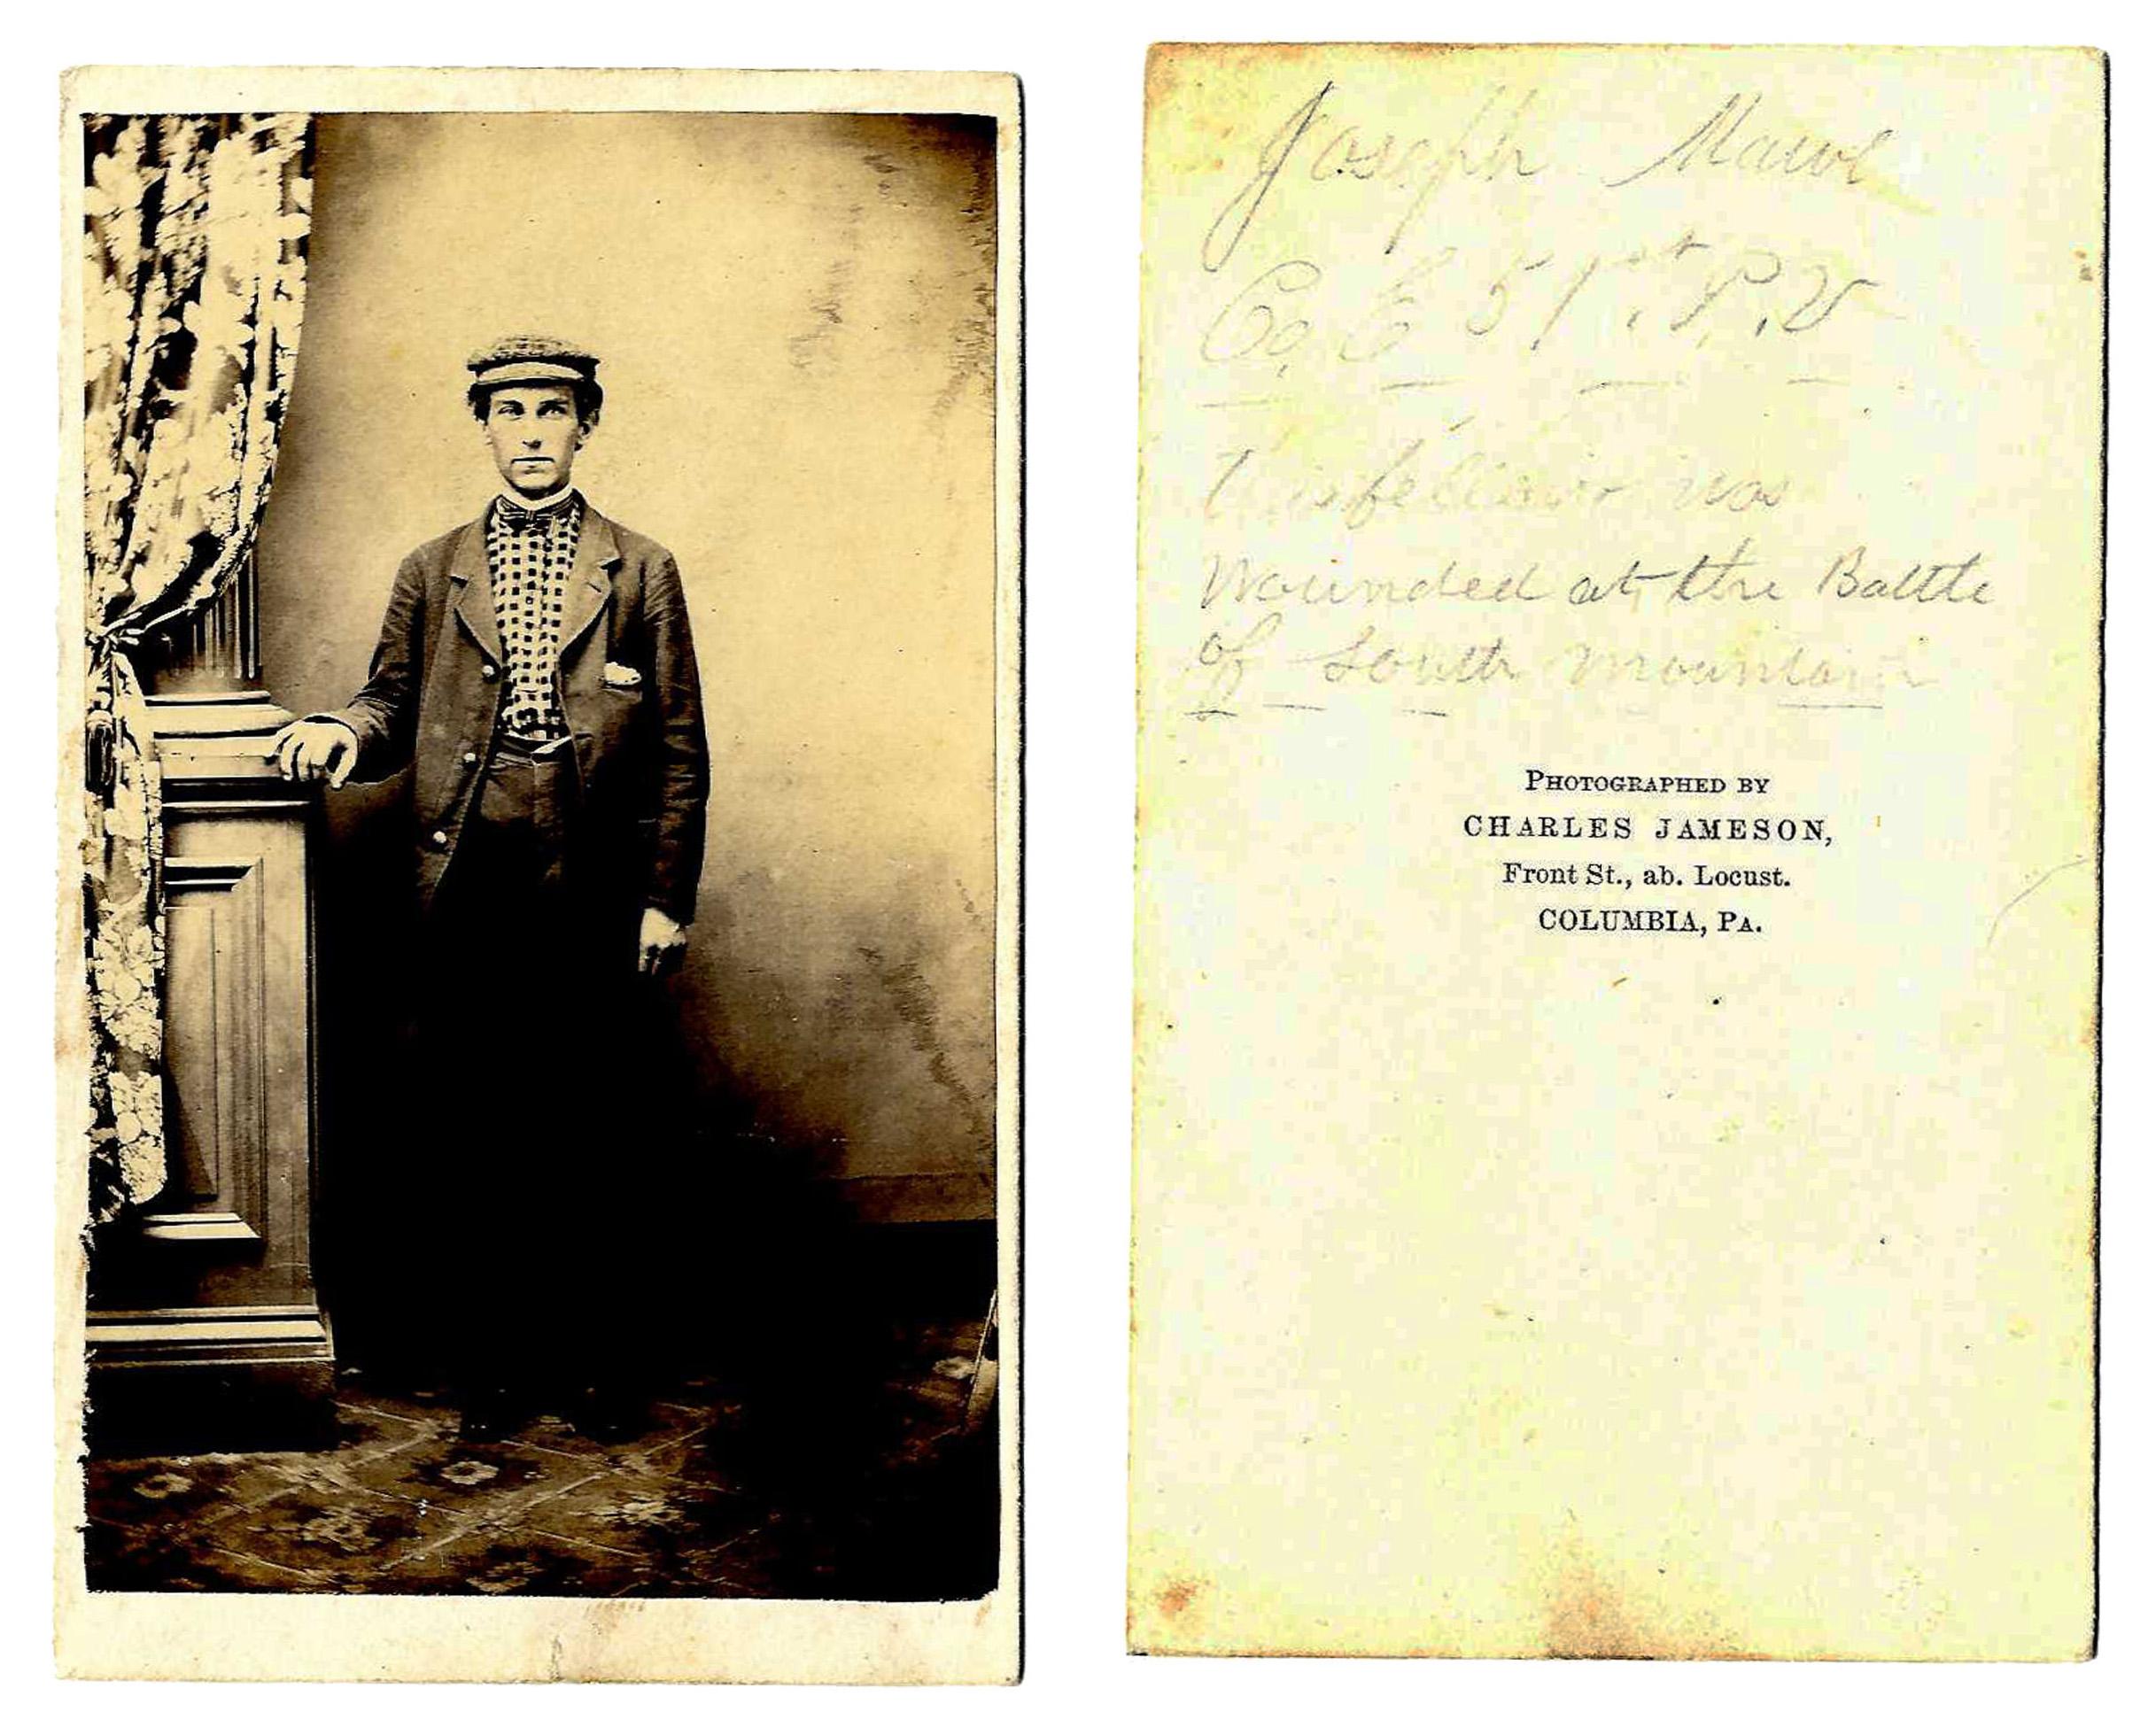 Joseph
Co. E 51st. P.V
This fellow was
Wounded at the Battle
of South mountain
PHOTOGRAPHED BY
CHARLES JAMESON,
Front St., ab. Locust.
COLUMBIA, PA.